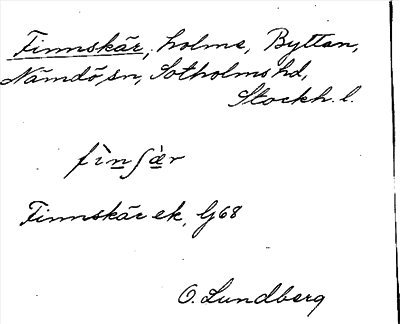 Finnskär, holme, Byttan,
Nämdö sn, Sotholms hd,
Stockh. l.
fìnʃær
Finnskär ek, G68
O. Lundberg